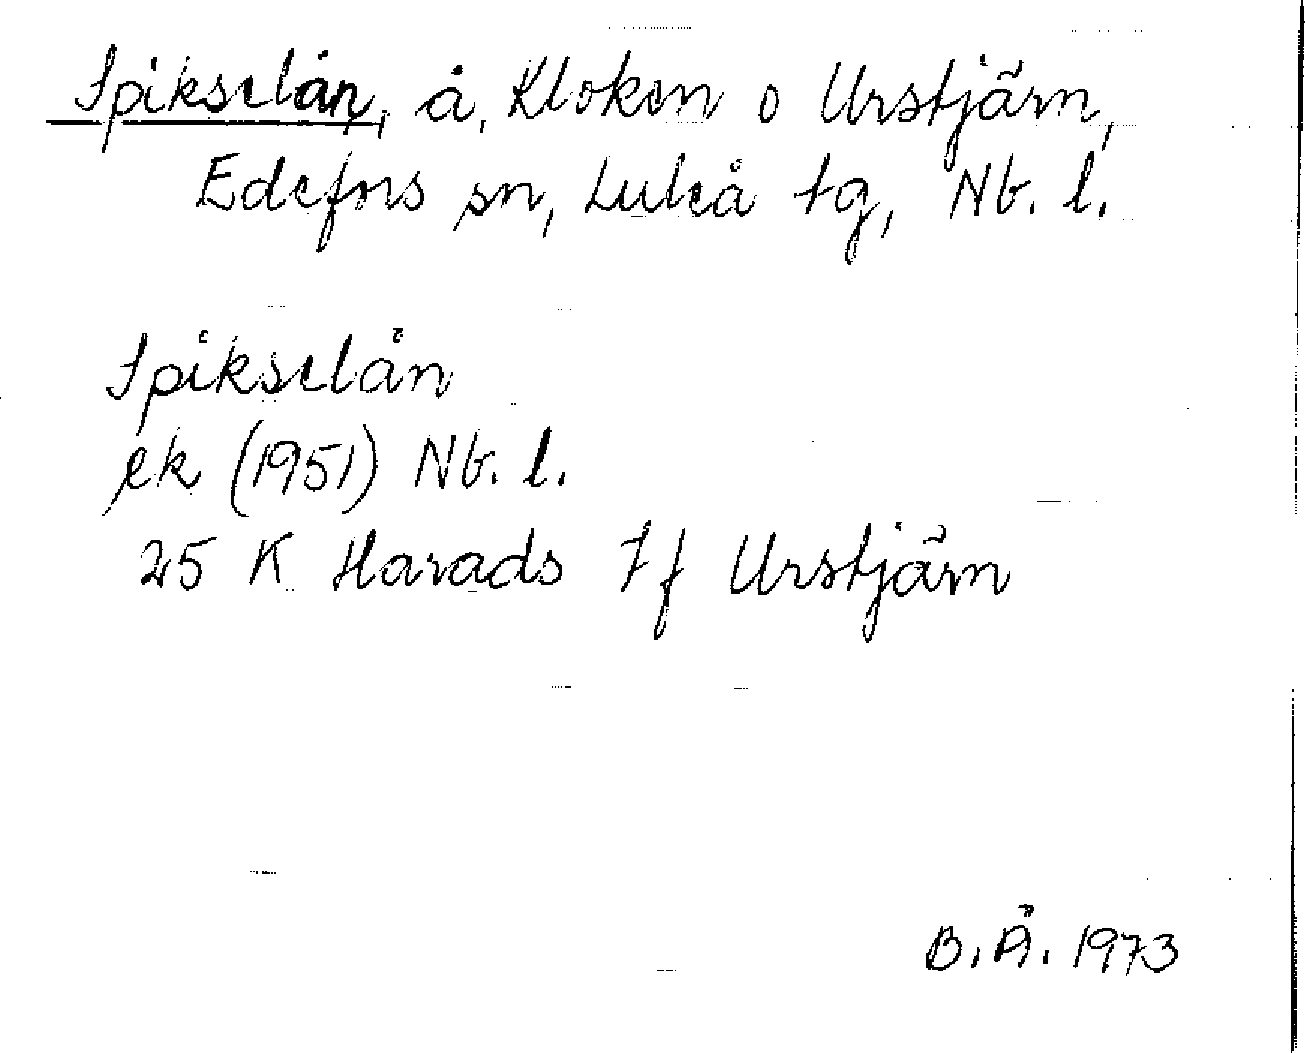 Spikselån, å, Kloken o Urstjärn,
Edefors sn, Luleå tg, Nb. l.
Spikselån
ek (1951) Nb. l.
25 K Harads 7f Urstjärn
B.Å. 1973